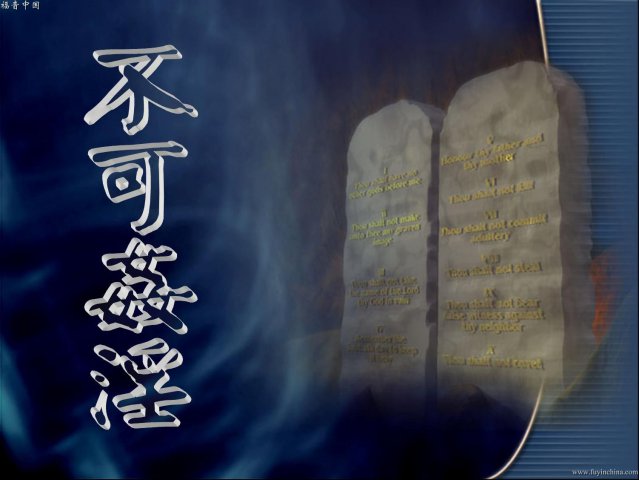 福音中国
不可姦淫
I
Thou shalt have no
other gods before me
II
Thou shalt not make
unto thee any graven
image
III
Thou shalt not take
the name of the Lord
thy God in vain
IV
Remember the
sabbath day to keep
it holy
V
Honour thy father and
thy mother
VI
Thou shalt not kill
VII
Thou shalt not commit
adultery
VIII
Thou shalt not steal
IX
Thou shalt not bear
false witness against
thy neighbor
X
Thou shalt not covet
www.fuyinchina.com